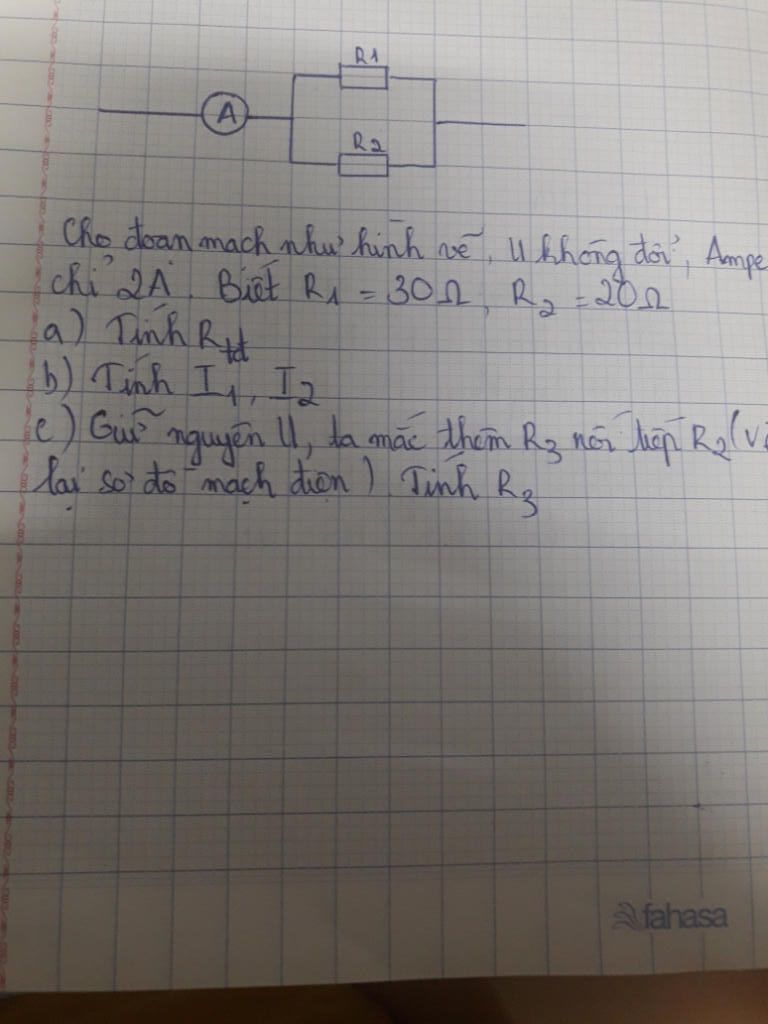 R1
A
R2
Cho đoan mach như hình vẽ, U không đổi, Ampe
chỉ 2A. Biết R1 = 30Ω, R2 = 20Ω
a) Tính Rtđ
b) Tính I1, I2
c) Giữ nguyên U, ta mắc thêm R3 nối tiếp R2 (
lại sơ đồ mạch điện) Tính R3
fahasa